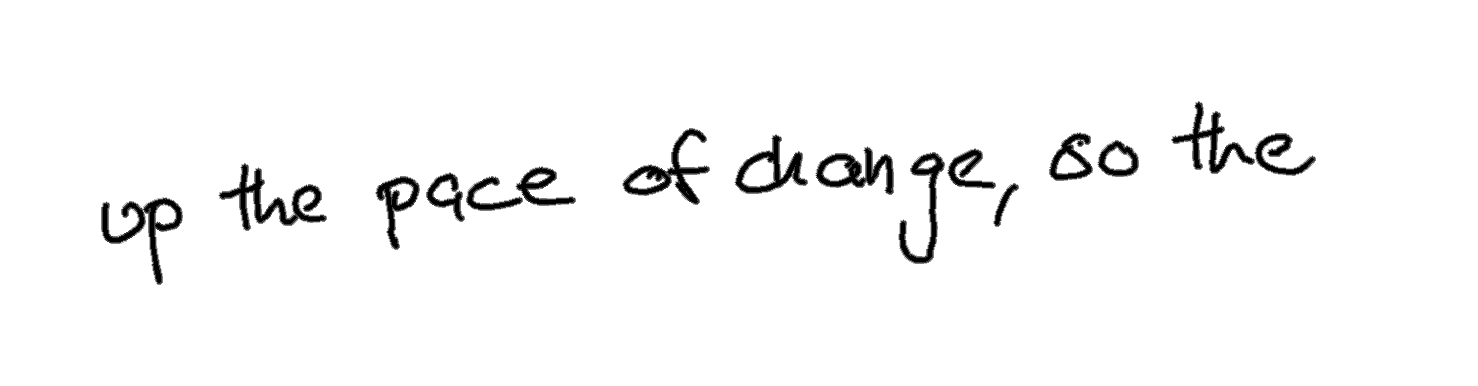 up the pace of change, so the